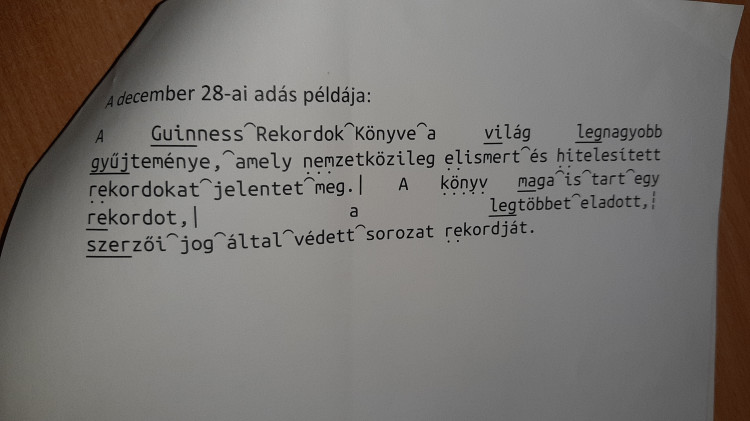 A december 28-ai adás példája:
A Guinness⁀Rekordok⁀Könyve⁀a világ legnagyobb
gyűjteménye,⁀amely nemzetközileg elismert⁀és hitelesített
rekordokat⁀jelentet⁀meg.| A könyv maga⁀is⁀tart⁀egy
rekordot,| a legtöbbet⁀eladott,¦
szerzői⁀jog⁀által⁀védett⁀sorozat rekordját.